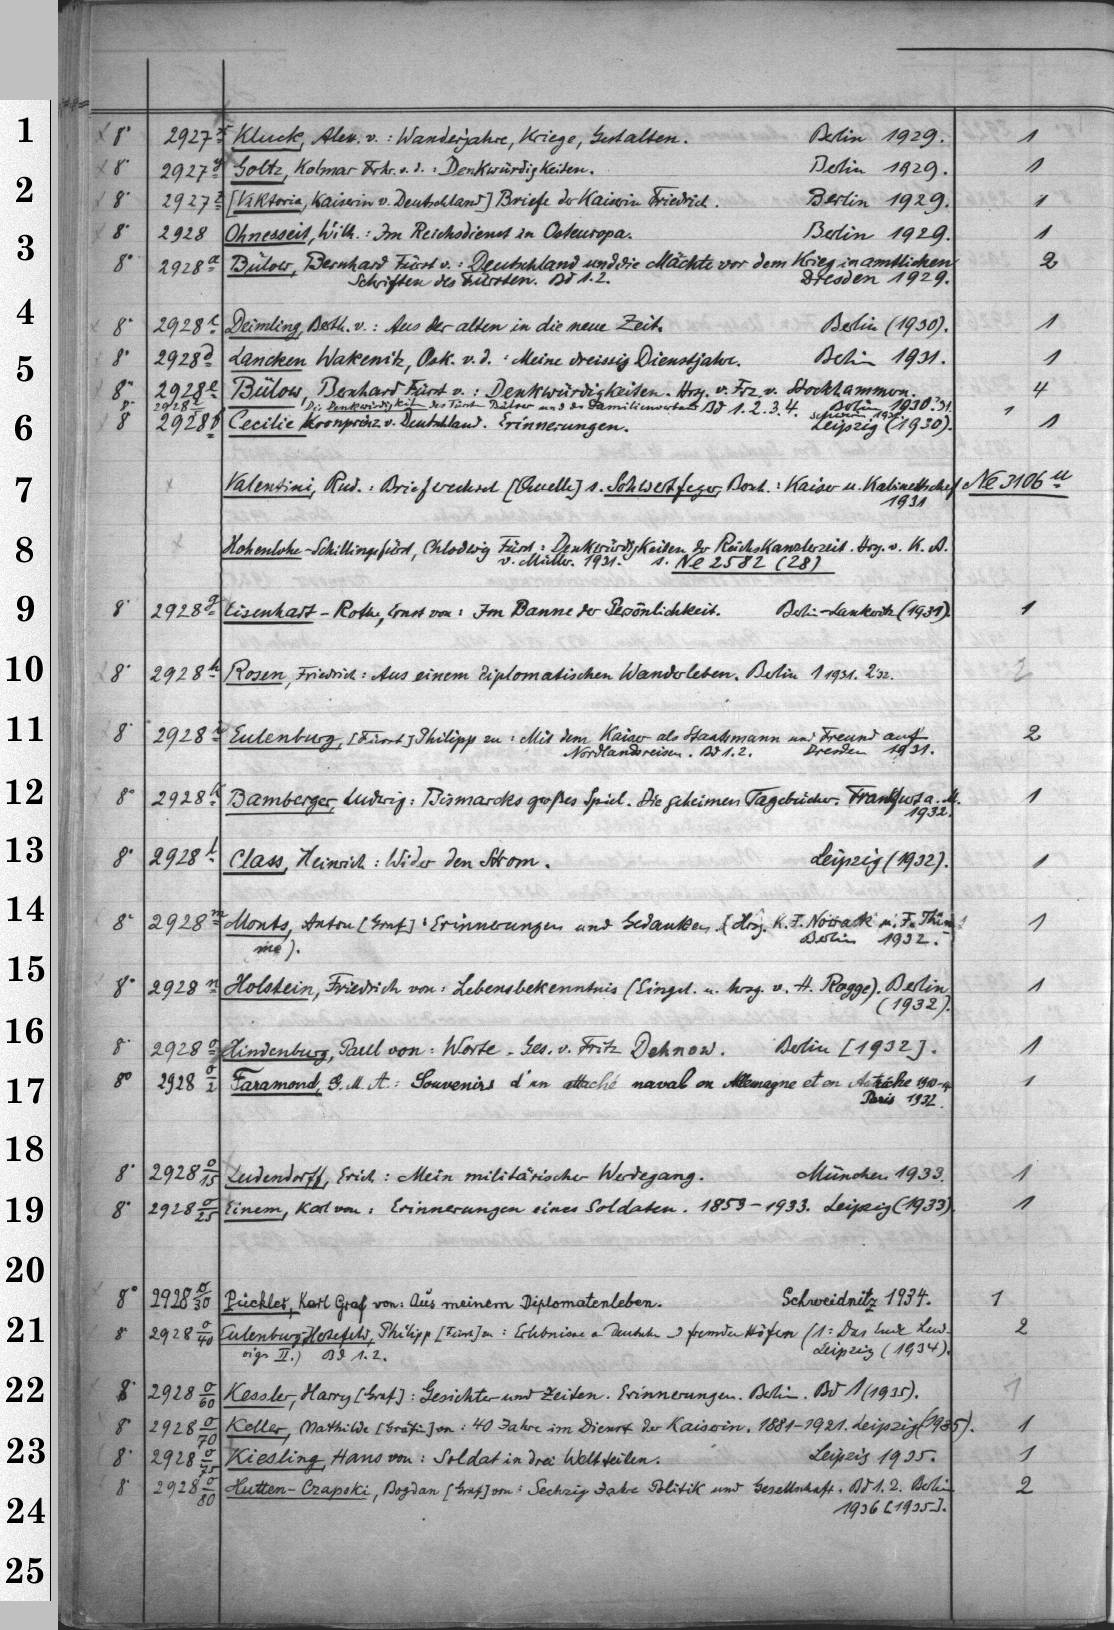 1 8° 2927 x Kluck, Alex. v. : Wanderjahre, Kriege, Gestalten. Berlin 1929. 1
8° 2927 y Goltz, Kolmar Frhr. v. d. : Denkwürdigkeiten. Berlin 1929. 1
2 8° 2927 z [Viktoria, Kaiserin v. Deutschland] Briefe der Kaiserin Friedrich. Berlin 1929. 1
8° 2928 Ohnesseit, Wilh. : Im Reichsdienst in Osteuropa. Berlin 1929. 1
3 8° 2928 a Bülow, Bernhard Fürst v. : Deutschland und die Mächte vor dem Krieg in amtlichen 2
Schriften des Fürsten. Bd 1. 2. Dresden 1929.
4 8° 2928 c Deimling, Berth. v. : Aus der alten in die neue Zeit. Berlin (1930). 1
5 8° 2928 d Lancken Wakenitz, Osk. v. d. : Meine dreissig Dienstjahre. Berlin 1931. 1
8° 2928 e Bülow, Bernhard Fürst v. : Denkwürdigkeiten. Hrsg. v. Frz. v. Stockhammern. 4
Bd 1. 2. 3. 4. Berlin 1930. 31.
8° 2928 Die Denkwürdigkeiten des Fürsten Bülow und der Familienverband Schwerin 1
6 8° 2928 f Cecilie Kronprinz. v. Deutschland. Erinnerungen. Leipzig (1930). 1
7 Valentini, Rud. : Briefwechsel [Quelle] s. Schwertfeger, Bernh. : Kaiser u. Kabinettschef Ne 3106 u
1931
8 Hohenlohe-Schillingsfürst, Chlodwig Fürst : Denkwürdigkeiten der Reichskanzlerzeit. Hrsg. v. K. A.
v. Müller. 1931. s. Ne 2582 (28)
9 8° 2928 g Eisenhart-Rothe, Ernst von : Im Banne der Persönlichkeit. Berlin-Lankwitz (1931). 1
10 8° 2928 h Rosen, Friedrich : Aus einem diplomatischen Wanderleben. Berlin 1 1931. 2 '32. 2
11 8° 2928 i Eulenburg, [Fürst] Philipp zu : Mit dem Kaiser als Staatsmann und Freund auf 2
Nordlandsreisen. Bd 1. 2. Dresden 1931.
12 8° 2928 k Bamberger, Ludwig : Bismarcks großes Spiel. Die geheimen Tagebücher. Frankfurt a. M. 1
1932.
13 8° 2928 l Class, Heinrich : Wider den Strom. Leipzig (1932). 1
14 8° 2928 m Monts, Anton [Graf] : Erinnerungen und Gedanken (Hrsg. K. F. Nowak u. F. Thim- 1
me). Berlin 1932.
15 8° 2928 n Holstein, Friedrich von : Lebensbekenntnis (Eingel. u. hrsg. v. H. Rogge). Berlin 1
(1932).
16 8° 2928 o Hindenburg, Paul von : Worte. Ges. v. Fritz Dehnow. Berlin [1932]. 1
17 8° 2928 o/2 Faramond, G. M. A. : Souvenirs d'un attaché naval en Allemagne et en Autriche 1910-14 1
Paris 1932.
18 8° 2928 o/15 Ludendorff, Erich : Mein militärischer Werdegang. München 1933. 1
19 8° 2928 o/25 Einem, Karl von : Erinnerungen eines Soldaten. 1853-1933. Leipzig (1933). 1
20 8° 2928 o/30 Pückler, Karl Graf von : Aus meinem Diplomatenleben. Schweidnitz 1934. 1
21 8° 2928 o/40 Eulenburg-Hertefeld, Philipp [Fürst] zu : Erlebnisse a. deutschen u. fremden Höfen (1: Das Ende Lud- 2
wigs II.) Bd 1. 2. Leipzig (1934).
22 8° 2928 o/60 Kessler, Harry [Graf] : Gesichter und Zeiten. Erinnerungen. Berlin. Bd 1 (1935). 1
8° 2928 o/70 Keller, Mathilde [Gräfin] von : 40 Jahre im Dienst der Kaiserin. 1881-1921. Leipzig (1935). 1
23 8° 2928 o/75 Kiesling, Hans von : Soldat in drei Weltteilen. Leipzig 1935. 1
8° 2928 o/80 Hutten-Czapski, Bogdan [Graf] von : Sechzig Jahre Politik und Gesellschaft. Bd 1. 2. Berlin 2
24 1936 [1935].
25